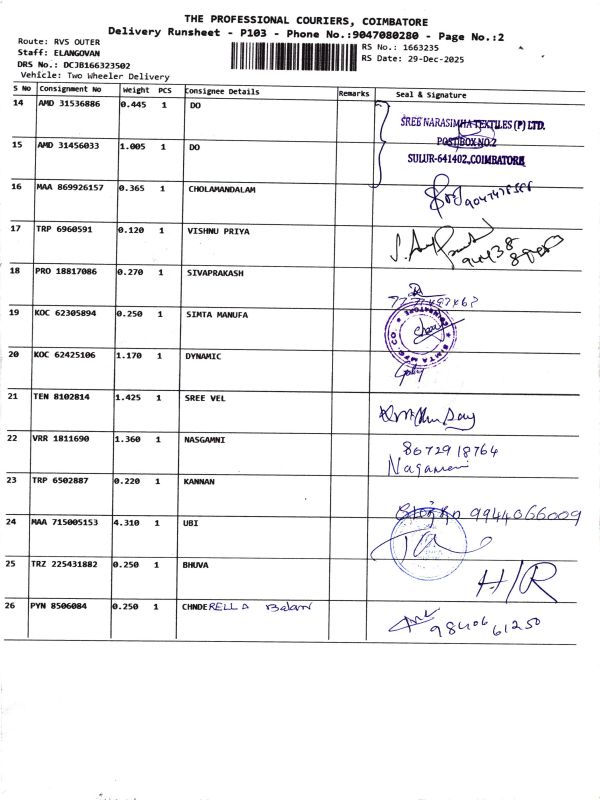 THE PROFESSIONAL COURIERS, COIMBATORE
Delivery Runsheet - P103 - Phone No.:9047080280 - Page No.:2
Route: RVS OUTER
Staff: ELANGOVAN
DRS No.: DCJB166323502
Vehicle: Two Wheeler Delivery
RS No.: 1663235
RS Date: 29-Dec-2025
S No Consignment No Weight PCS Consignee Details Remarks Seal & Signature
14 AMD 31536886 0.445 1 DO
SREE NARASIMHA TEXTILES (P) LTD.
POST BOX NO.2
SULUR-641402, COIMBATORE
15 AMD 31456033 1.005 1 DO
16 MAA 869926157 0.365 1 CHOLAMANDALAM
17 TRP 6960591 0.120 1 VISHNU PRIYA
18 PRO 18817086 0.270 1 SIVAPRAKASH
19 KOC 62305894 0.250 1 SIMTA MANUFA
SIMTA MFG. CO. COIMBATORE
20 KOC 62425106 1.170 1 DYNAMIC
21 TEN 8102814 1.425 1 SREE VEL
22 VRR 1811690 1.360 1 NASGAMNI
8072918764
Nagamani
23 TRP 6502887 0.220 1 KANNAN
9944066009
24 MAA 715005153 4.310 1 UBI
25 TRZ 225431882 0.250 1 BHUVA
H/R
26 PYN 8506084 0.250 1 CHNDERELLA Balan
98406 61250